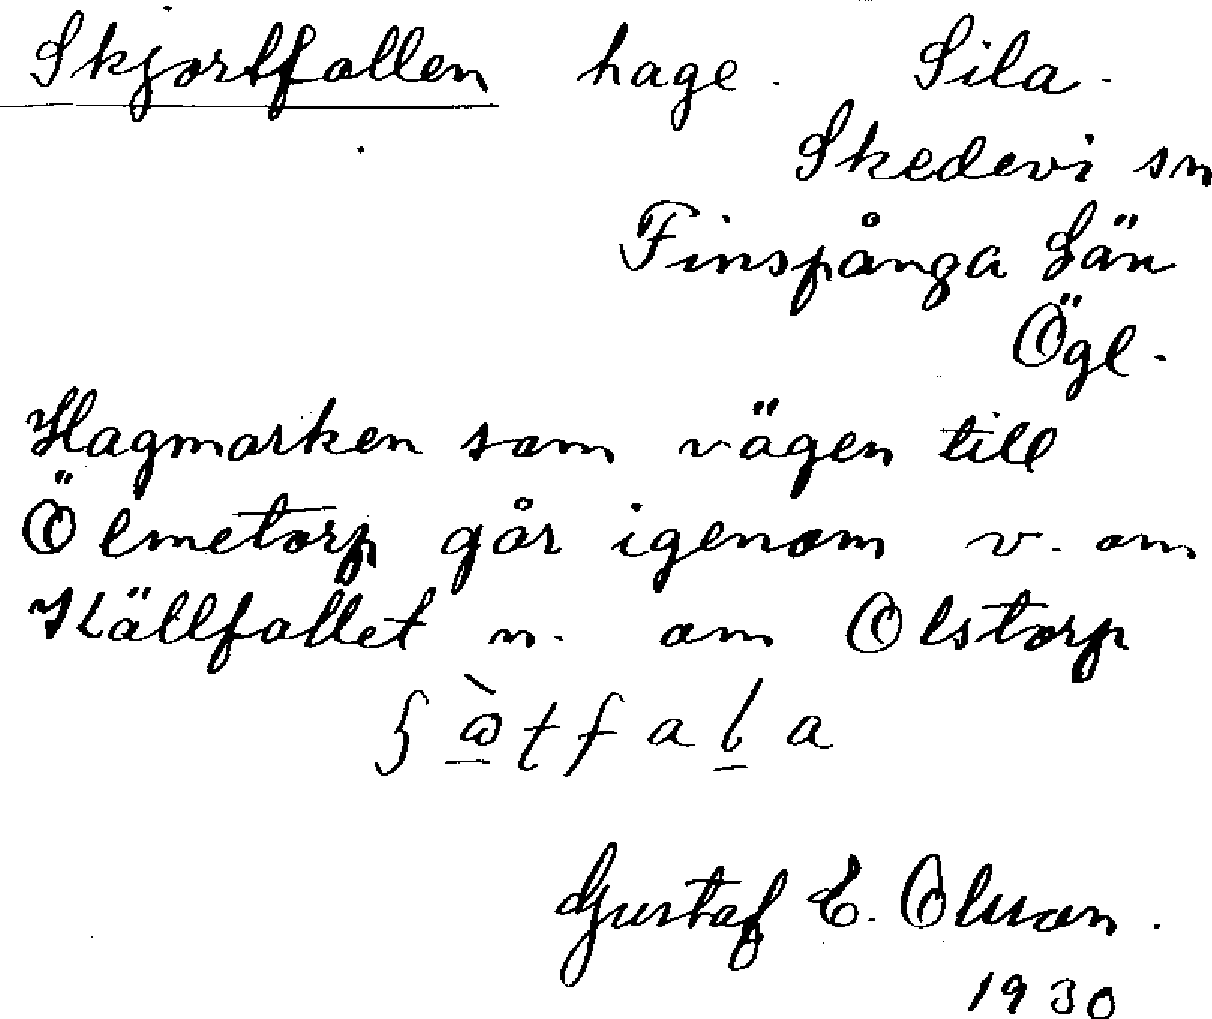 Skjortfallen hage. Sila.
Skedevi sn
Finspånga Län
Ögl.
Hagmarken som vägen till
Ölmetorp går igenom v. om
Källfallet n. om Olstorp
Gustaf E. Olsson.
1930